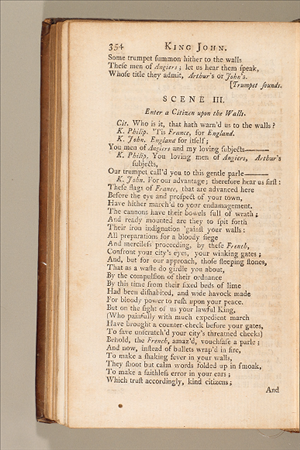 354 KING JOHN.
Some trumpet summon hither to the walls
Theſe men of Angiers; let us hear them ſpeak,
Whoſe title they admit, Arthur's or John's.
[Trumpet ſounds.
SCENE III.
Enter a Citizen upon the Walls.
Cit. Who is it, that hath warn'd us to the walls?
K. Philip. 'Tis France, for England.
K. John. England for itſelf;
You men of Angiers and my loving ſubjects———
K. Philip. You loving men of Angiers, Arthur's
ſubjects,
Our trumpet call'd you to this gentle parle———
K. John. For our advantage; therefore hear us firſt:
Theſe flags of France, that are advanced here
Before the eye and proſpect of your town,
Have hither march'd to your endamagement.
The cannons have their bowels full of wrath;
And ready mounted are they to ſpit forth
Their iron indignation 'gainſt your walls:
All preparation for a bloody ſiege
And mercileſs proceeding, by theſe French,
Confront your city's eyes, your winking gates;
And, but for our approach, thoſe ſleeping ſtones,
That as a waiſte do girdle you about,
By the compulſion of their ordnance
By this time from their fixed beds of lime
Had been diſhabited, and wide havock made
For bloody power to ruſh upon your peace.
But on the ſight of us your lawful King,
(Who painfully with much expedient march
Have brought a counter-check before your gates,
To ſave unſcratch'd your city's threatned cheeks)
Behold, the French, amaz'd, vouchſafe a parle;
And now, inſtead of bullets wrap'd in fire,
To make a ſhaking fever in your walls,
They ſhoot but calm words folded up in ſmoak,
To make a faithleſs error in your ears;
Which truſt accordingly, kind citizens;
And